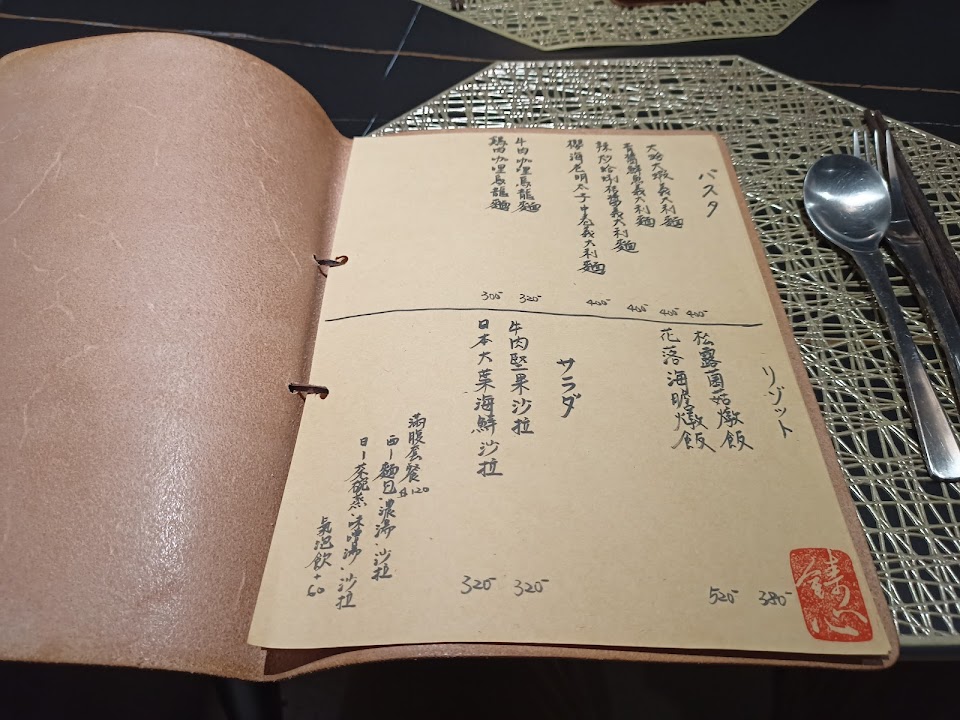 パスタ
大蛤大蝦義大利麵
青醬鮮魚義大利麵
辣炒蛤蜊義大利麵
櫻海老明太子中卷義大利麵
牛肉咖哩烏龍麵
雞肉咖哩烏龍麵
400 400 400 400 320 300
リゾット
松露菌菇燉飯
花落海膽燉飯
サラダ
牛肉堅果沙拉
日本大葉海鮮沙拉
滿腹套餐 $120
西—麵包.濃湯.沙拉
日—茶碗蒸.味噌湯.沙拉
氣泡飲+60
380 520 320 320
鑄心